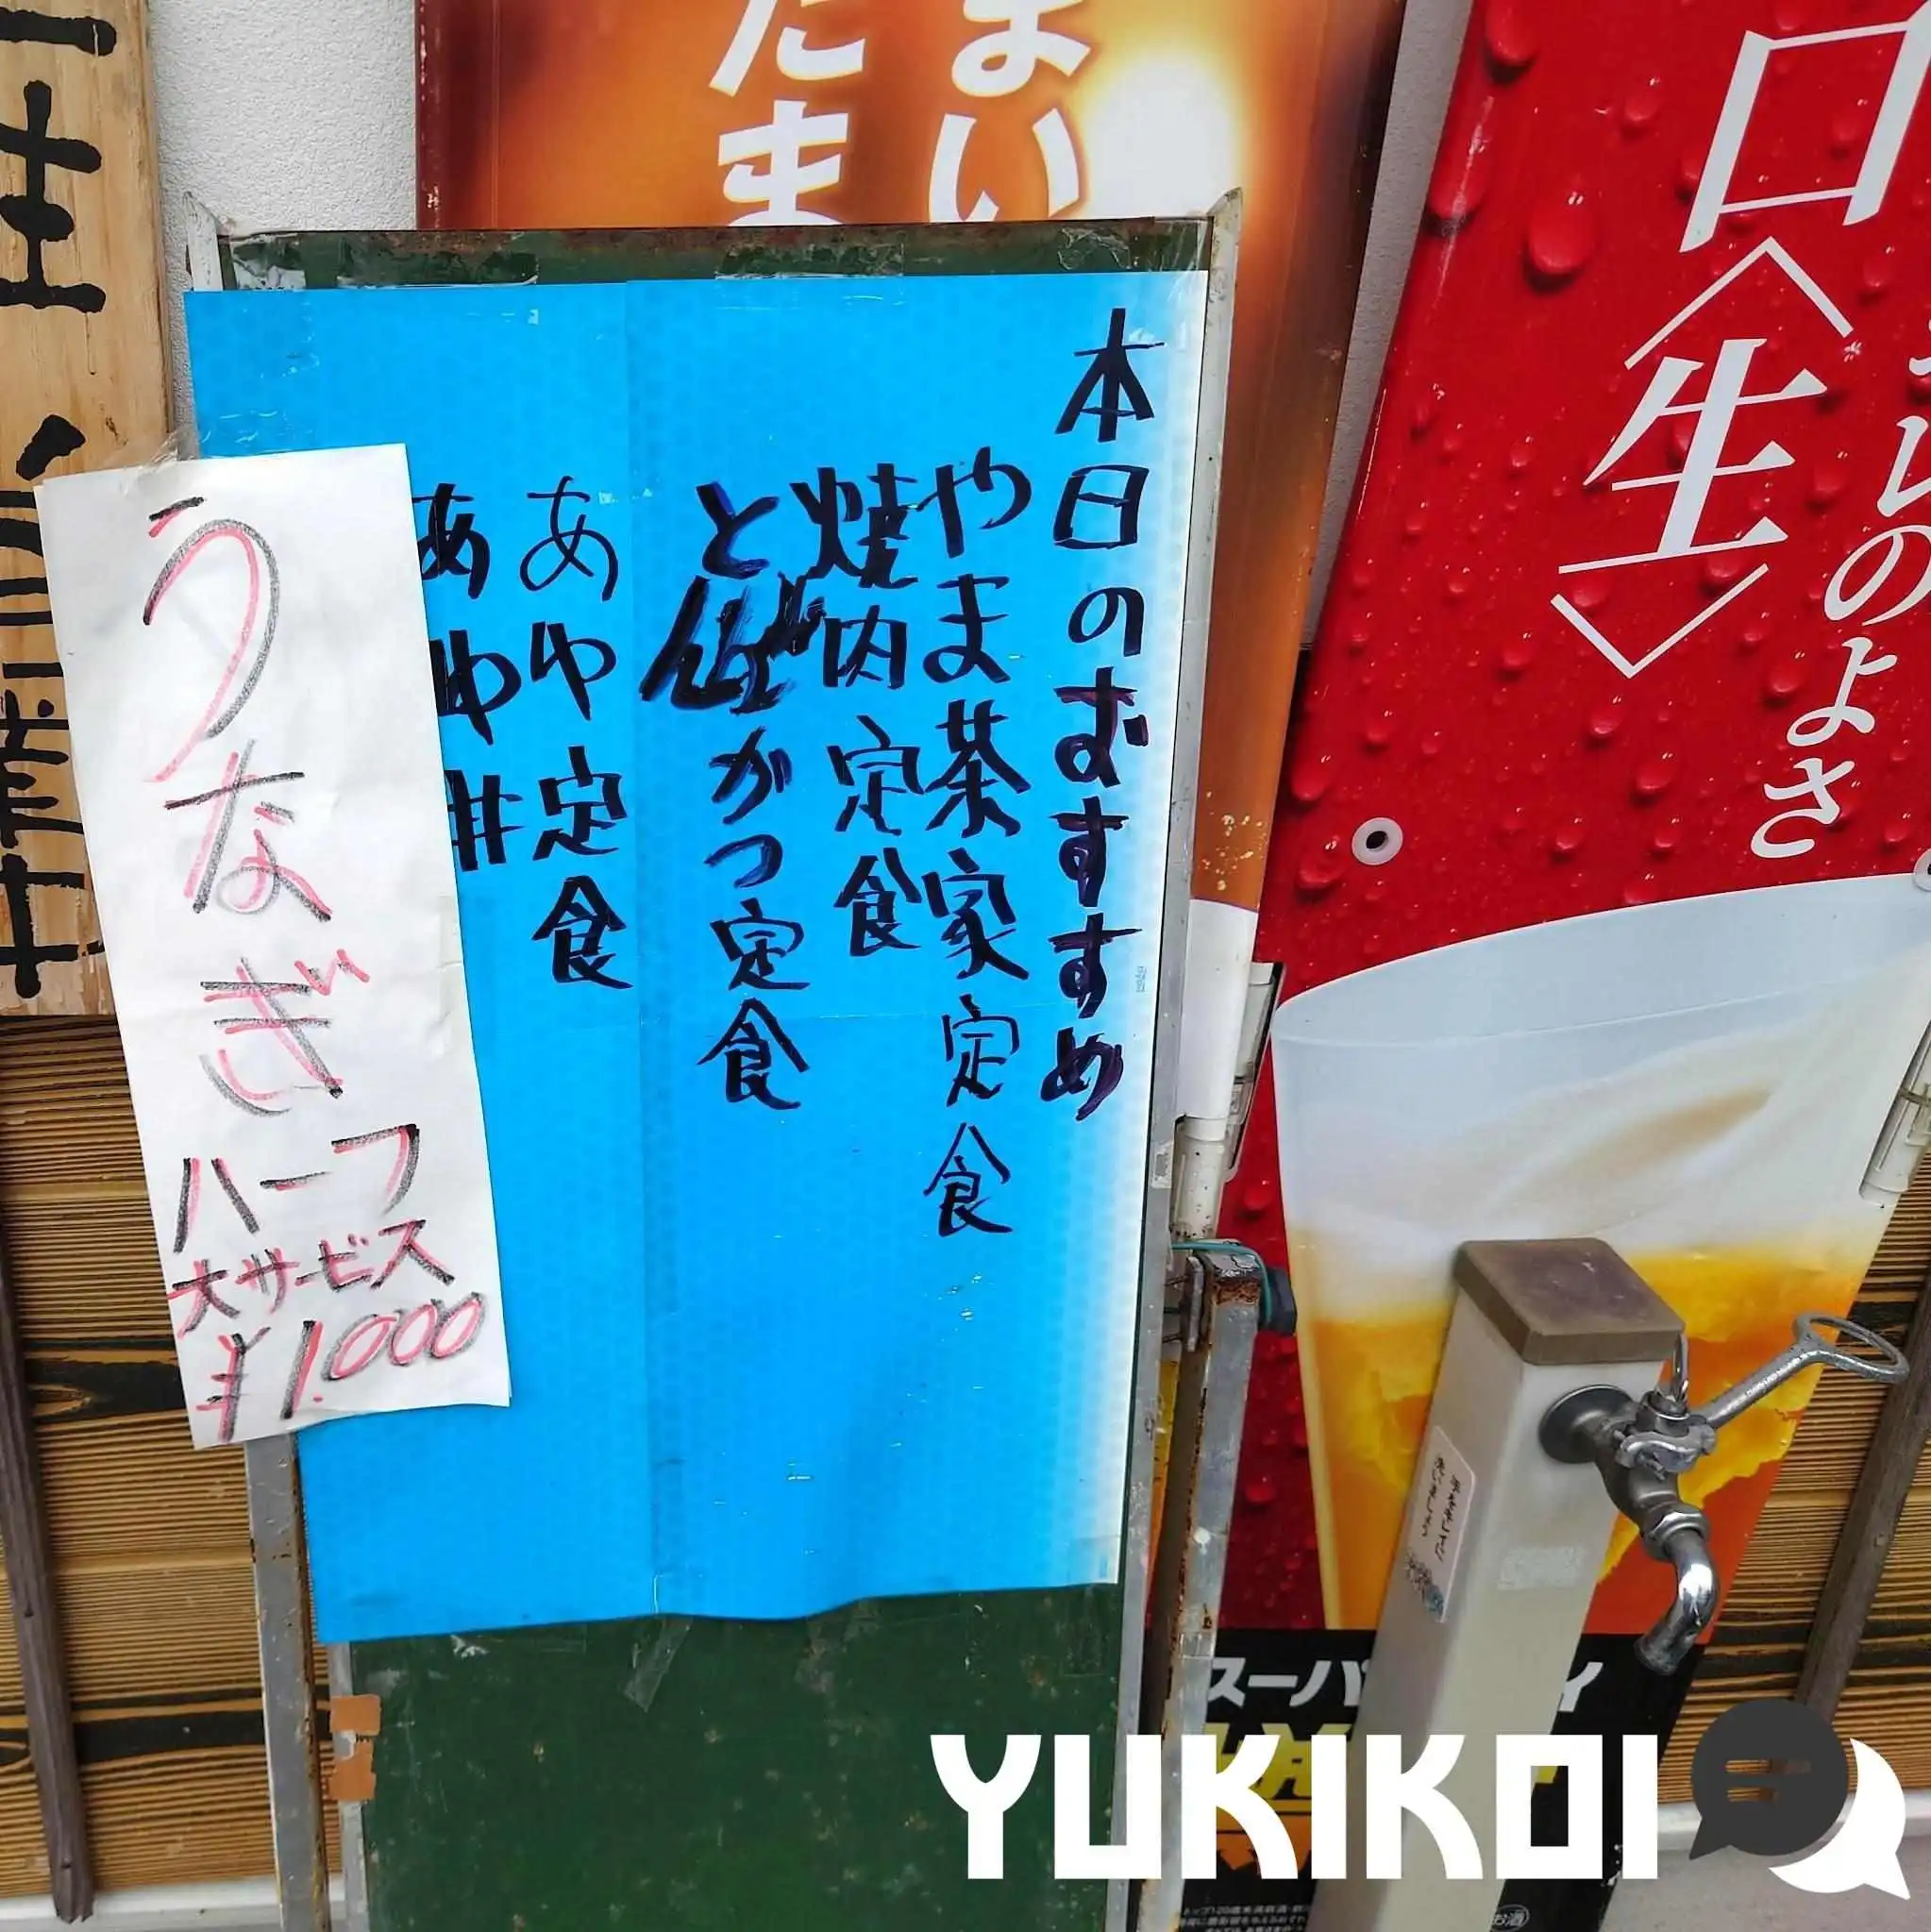 本日のおすすめ
やま茶家定食
焼肉定食
とんかつ定食
あゆ定食
あゆ丼
うなぎ
ハーフ
大サービス
¥1.000
まい
たま
口
〈生〉
のよさ
スーパ
YUKIKOI